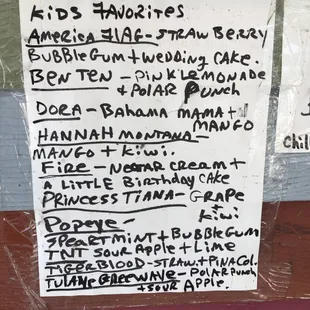 KiDS FAVORiTES
AMERICA FLAG-STRAWBERRY
BUBBLEGUM+WEDDING CAKE.
BEN TEN - PiNKLEMONADE
+ POLAR PUNCH
DORA - BAHAMA MAMA +
MANGO
HANNAH MONTANA -
MANGO + KiWi.
FiRE - NECTAR CREAM +
A LiTTLE BiRTHDAY CAKE
PRiNCESS TiANA - GRAPE
KiWi
POPEYE -
SPEARTMiNT + BUBBLEGUM
TNT SOUR APPLE + LiME
TiGERBLOOD - STRAW. + PiNACOL.
TULANE GREEWAVE - POLAR PUNCH
+ SOUR APPLE.
Chil